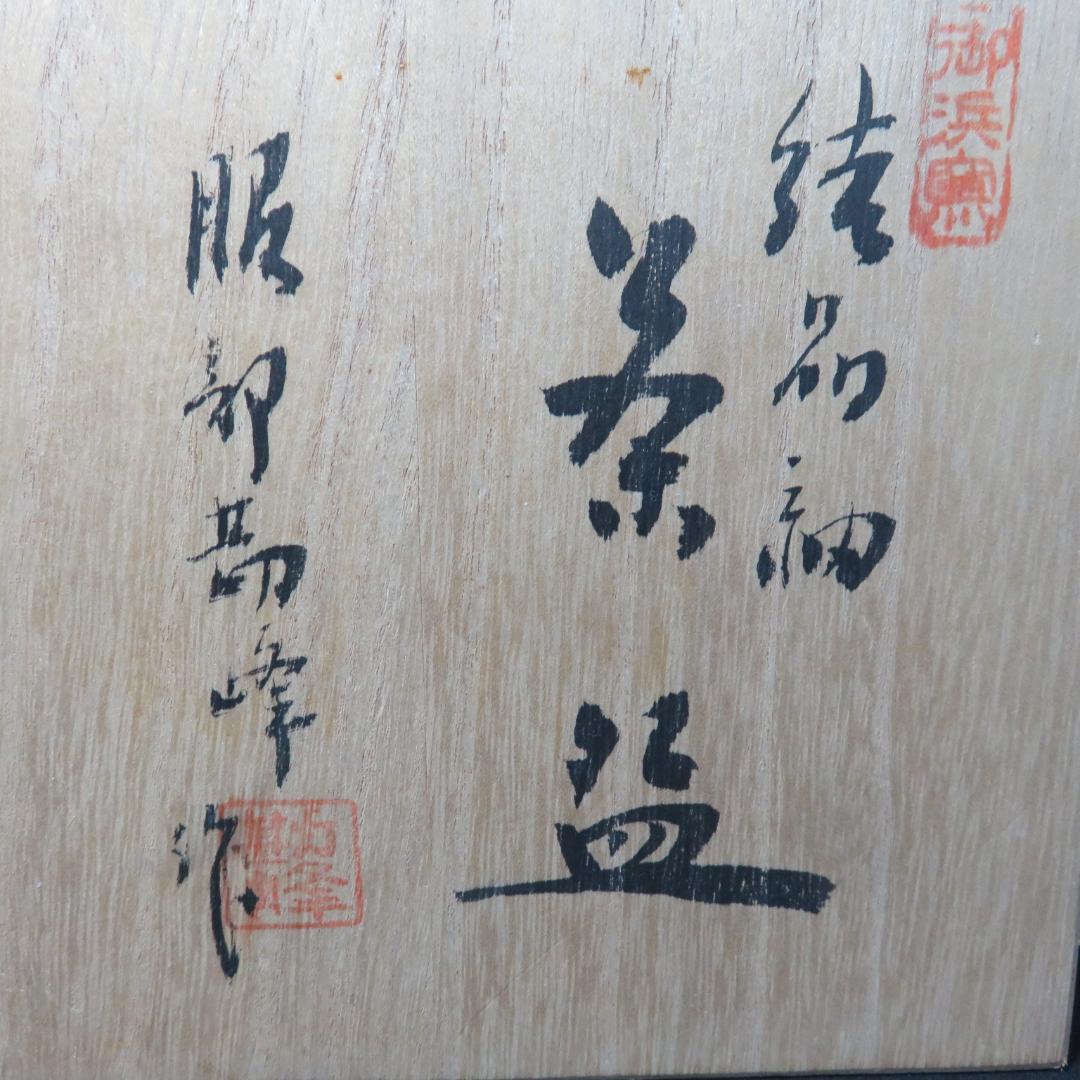 御浜窯
結晶釉
茶盌
服部勘峰作
勘峰